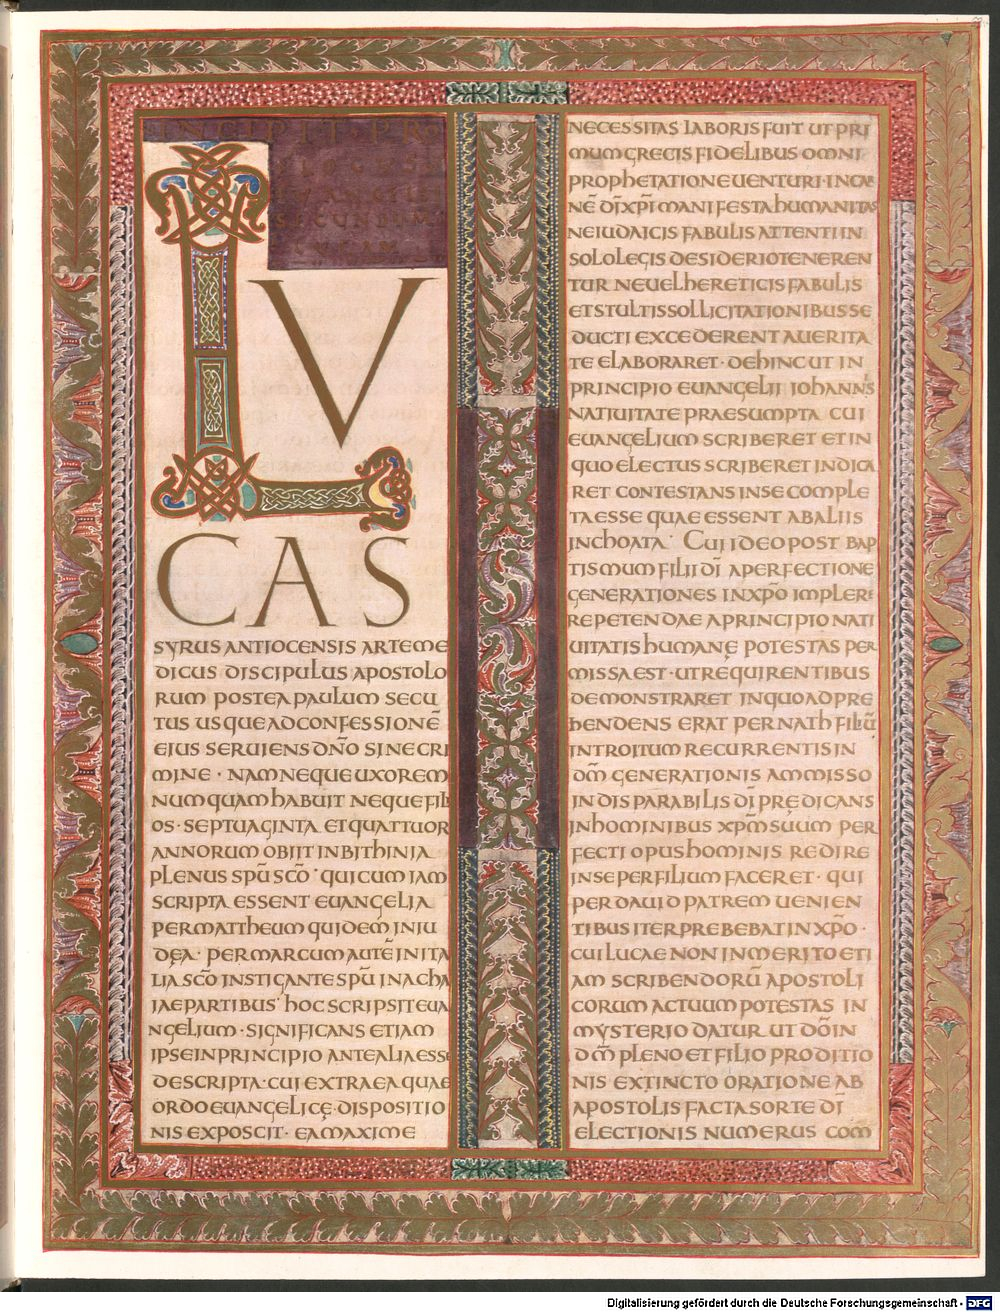 INCIPIT·PRO
SECUNDUM
LUCAM
LV
CAS
SYRUS ANTIOCENSIS ARTEME
DICUS DISCIPULUS APOSTOLO
RUM POSTEA PAULUM SECU
TUS USQUE AD CONFESSIONĒ
EIUS SERUIENS DN̄O SINE CRI
MINE · NAM NEQUE UXOREM
NUMQUAM HABUIT NEQUE FILI
OS · SEPTUAGINTA ET QUATTUOR
ANNORUM OBIIT IN BITHINIA
PLENUS SPŪ SCŌ · QUI CUM IAM
SCRIPTA ESSENT EUANGELIA
PER MATTHEUM QUIDEM IN IU
DĘA · PER MARCUM AUTĒ IN ITA
LIA SCŌ INSTIGANTE SPŪ IN ACHA
IAE PARTIBUS · HOC SCRIPSIT EUA
NGELIUM · SIGNIFICANS ETIAM
IPSE IN PRINCIPIO ANTE ALIA ESSE
DESCRIPTA · CUI EXTRA EA QUAE
ORDO EUANGELICĘ DISPOSITIO
NIS EXPOSCIT · EA MAXIME
NECESSITAS LABORIS FUIT UT PRI
MUM GRECIS FIDELIBUS OMNI
PROPHETATIONE UENTURI · IN CAR
NĒ DĪ XP̄I MANIFESTA HUMANITAS
NE IUDAICIS FABULIS ATTENTI IN
SOLO LEGIS DESIDERIO TENEREN
TUR NE UEL HERETICIS FABULIS
ET STULTIS SOLLICITATIONIBUS SE
DUCTI EXCEDERENT A UERITA
TE ELABORARET · DEHINC UT IN
PRINCIPIO EUANGELII IOHANNIS
NATIUITATE PRAESUMPTA CUI
EUANGELIUM SCRIBERET ET IN
QUO ELECTUS SCRIBERET INDICA
RET CONTESTANS IN SE COMPLE
TA ESSE QUAE ESSENT AB ALIIS
INCHOATA · CUI IDEO POST BAP
TISMUM FILII DĪ A PERFECTIONE
GENERATIONES IN XP̄O IMPLERI
REPETENDAE A PRINCIPIO NATI
UITATIS HUMANĘ POTESTAS PER
MISSA EST · UT REQUIRENTIBUS
DEMONSTRARET IN QUO ADPRE
HENDENS ERAT PER NATH FILIŪ
INTROITUM RECURRENTIS IN
DM̄ GENERATIONIS AMMISSO
INDISPARABILIS DĪ PRĘDICANS
IN HOMINIBUS XP̄M SUUM PER
FECTI OPUS HOMINIS REDIRE
IN SE PER FILIUM FACERET · QUI
PER DAUID PATREM UENIEN
TIBUS ITER PREBEBAT IN XP̄O ·
CUI LUCAE NON INMERITO ETI
AM SCRIBENDORŪ APOSTOLI
CORUM ACTUUM POTESTAS IN
MYSTERIO DATUR UT DŌ IN
DM̄ PLENO ET FILIO PRODITIO
NIS EXTINCTO ORATIONE AB
APOSTOLIS FACTA SORTE DĪ
ELECTIONIS NUMERUS COM
Digitalisierung gefördert durch die Deutsche Forschungsgemeinschaft - DFG